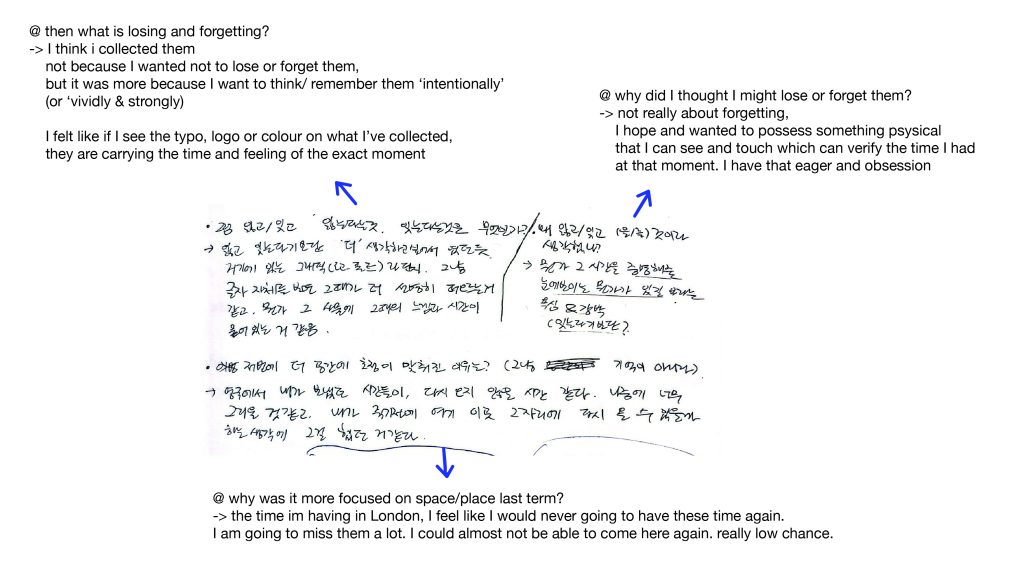 @ then what is losing and forgetting?
-> I think i collected them
not because I wanted not to lose or forget them,
but it was more because I want to think/ remember them ‘intentionally’
(or ‘vividly & strongly)
I felt like if I see the typo, logo or colour on what I’ve collected,
they are carrying the time and feeling of the exact moment
@ why did I thought I might lose or forget them?
-> not really about forgetting,
I hope and wanted to possess something psysical
that I can see and touch which can verify the time I had
at that moment. I have that eager and obsession
잃고/잊고 잃는다는것. 잊는다는것은 무엇인가?
→ 잃고 잊는다기보단 '더' 생각하고싶어서
거기에 있는 그래픽 (
글자 자체를 보면 그때가 더 선명히 떠오르는거
같고. 뭔가 그 사물에 그때의 느낌과 시간이
들어있는 거 같음.
왜 잃고/잊고 (을/를) 것이라
생각했나?
→ 뭔가 그 시간을 증명해줄
눈에보이는 뭔가가 있길 바라는
욕심 & 강박
(잊는다기보단?
• 저번에 더 공간에 초점이 맞춰진 이유는? (그냥 기억이 아니라).
→ 영국에서 내가 보내는 시간들이, 다시 오지 않을 시간 같다. 나중에 너무
그리울 것같고. 내가 죽기전에 여기 이곳 그자리에 다시 올 수 없을거
하는 생각에 그걸 했던 거같다.
@ why was it more focused on space/place last term?
-> the time im having in London, I feel like I would never going to have these time again.
I am going to miss them a lot. I could almost not be able to come here again. really low chance.